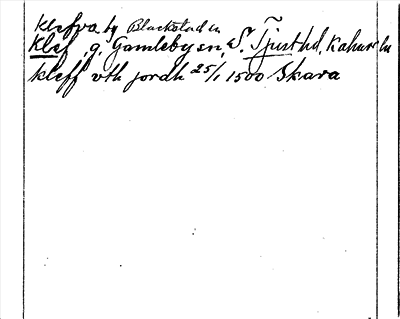 Klefva by Blackstad sn
Klef, g. Gamleby sn, S. Tjust hd, Kalmar län
kleff vth jordh 25/1 1500 Skara